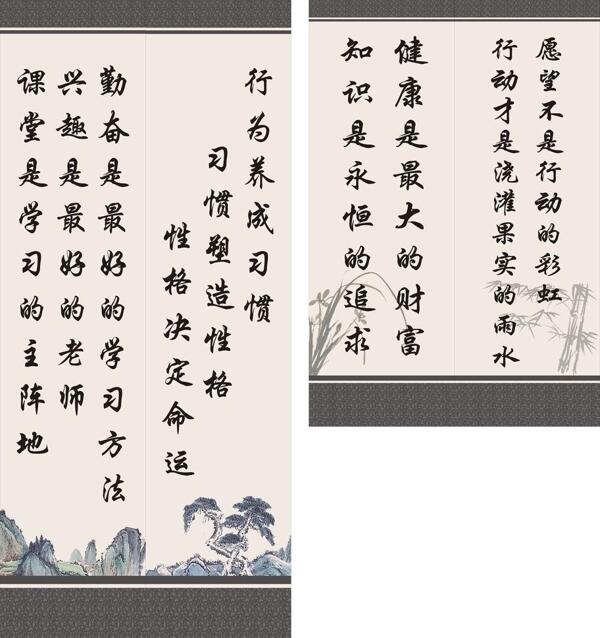 行为养成习惯
习惯塑造性格
性格决定命运
勤奋是最好的学习方法
兴趣是最好的老师
课堂是学习的主阵地
愿望不是行动的彩虹
行动才是浇灌果实的雨水
健康是最大的财富
知识是永恒的追求